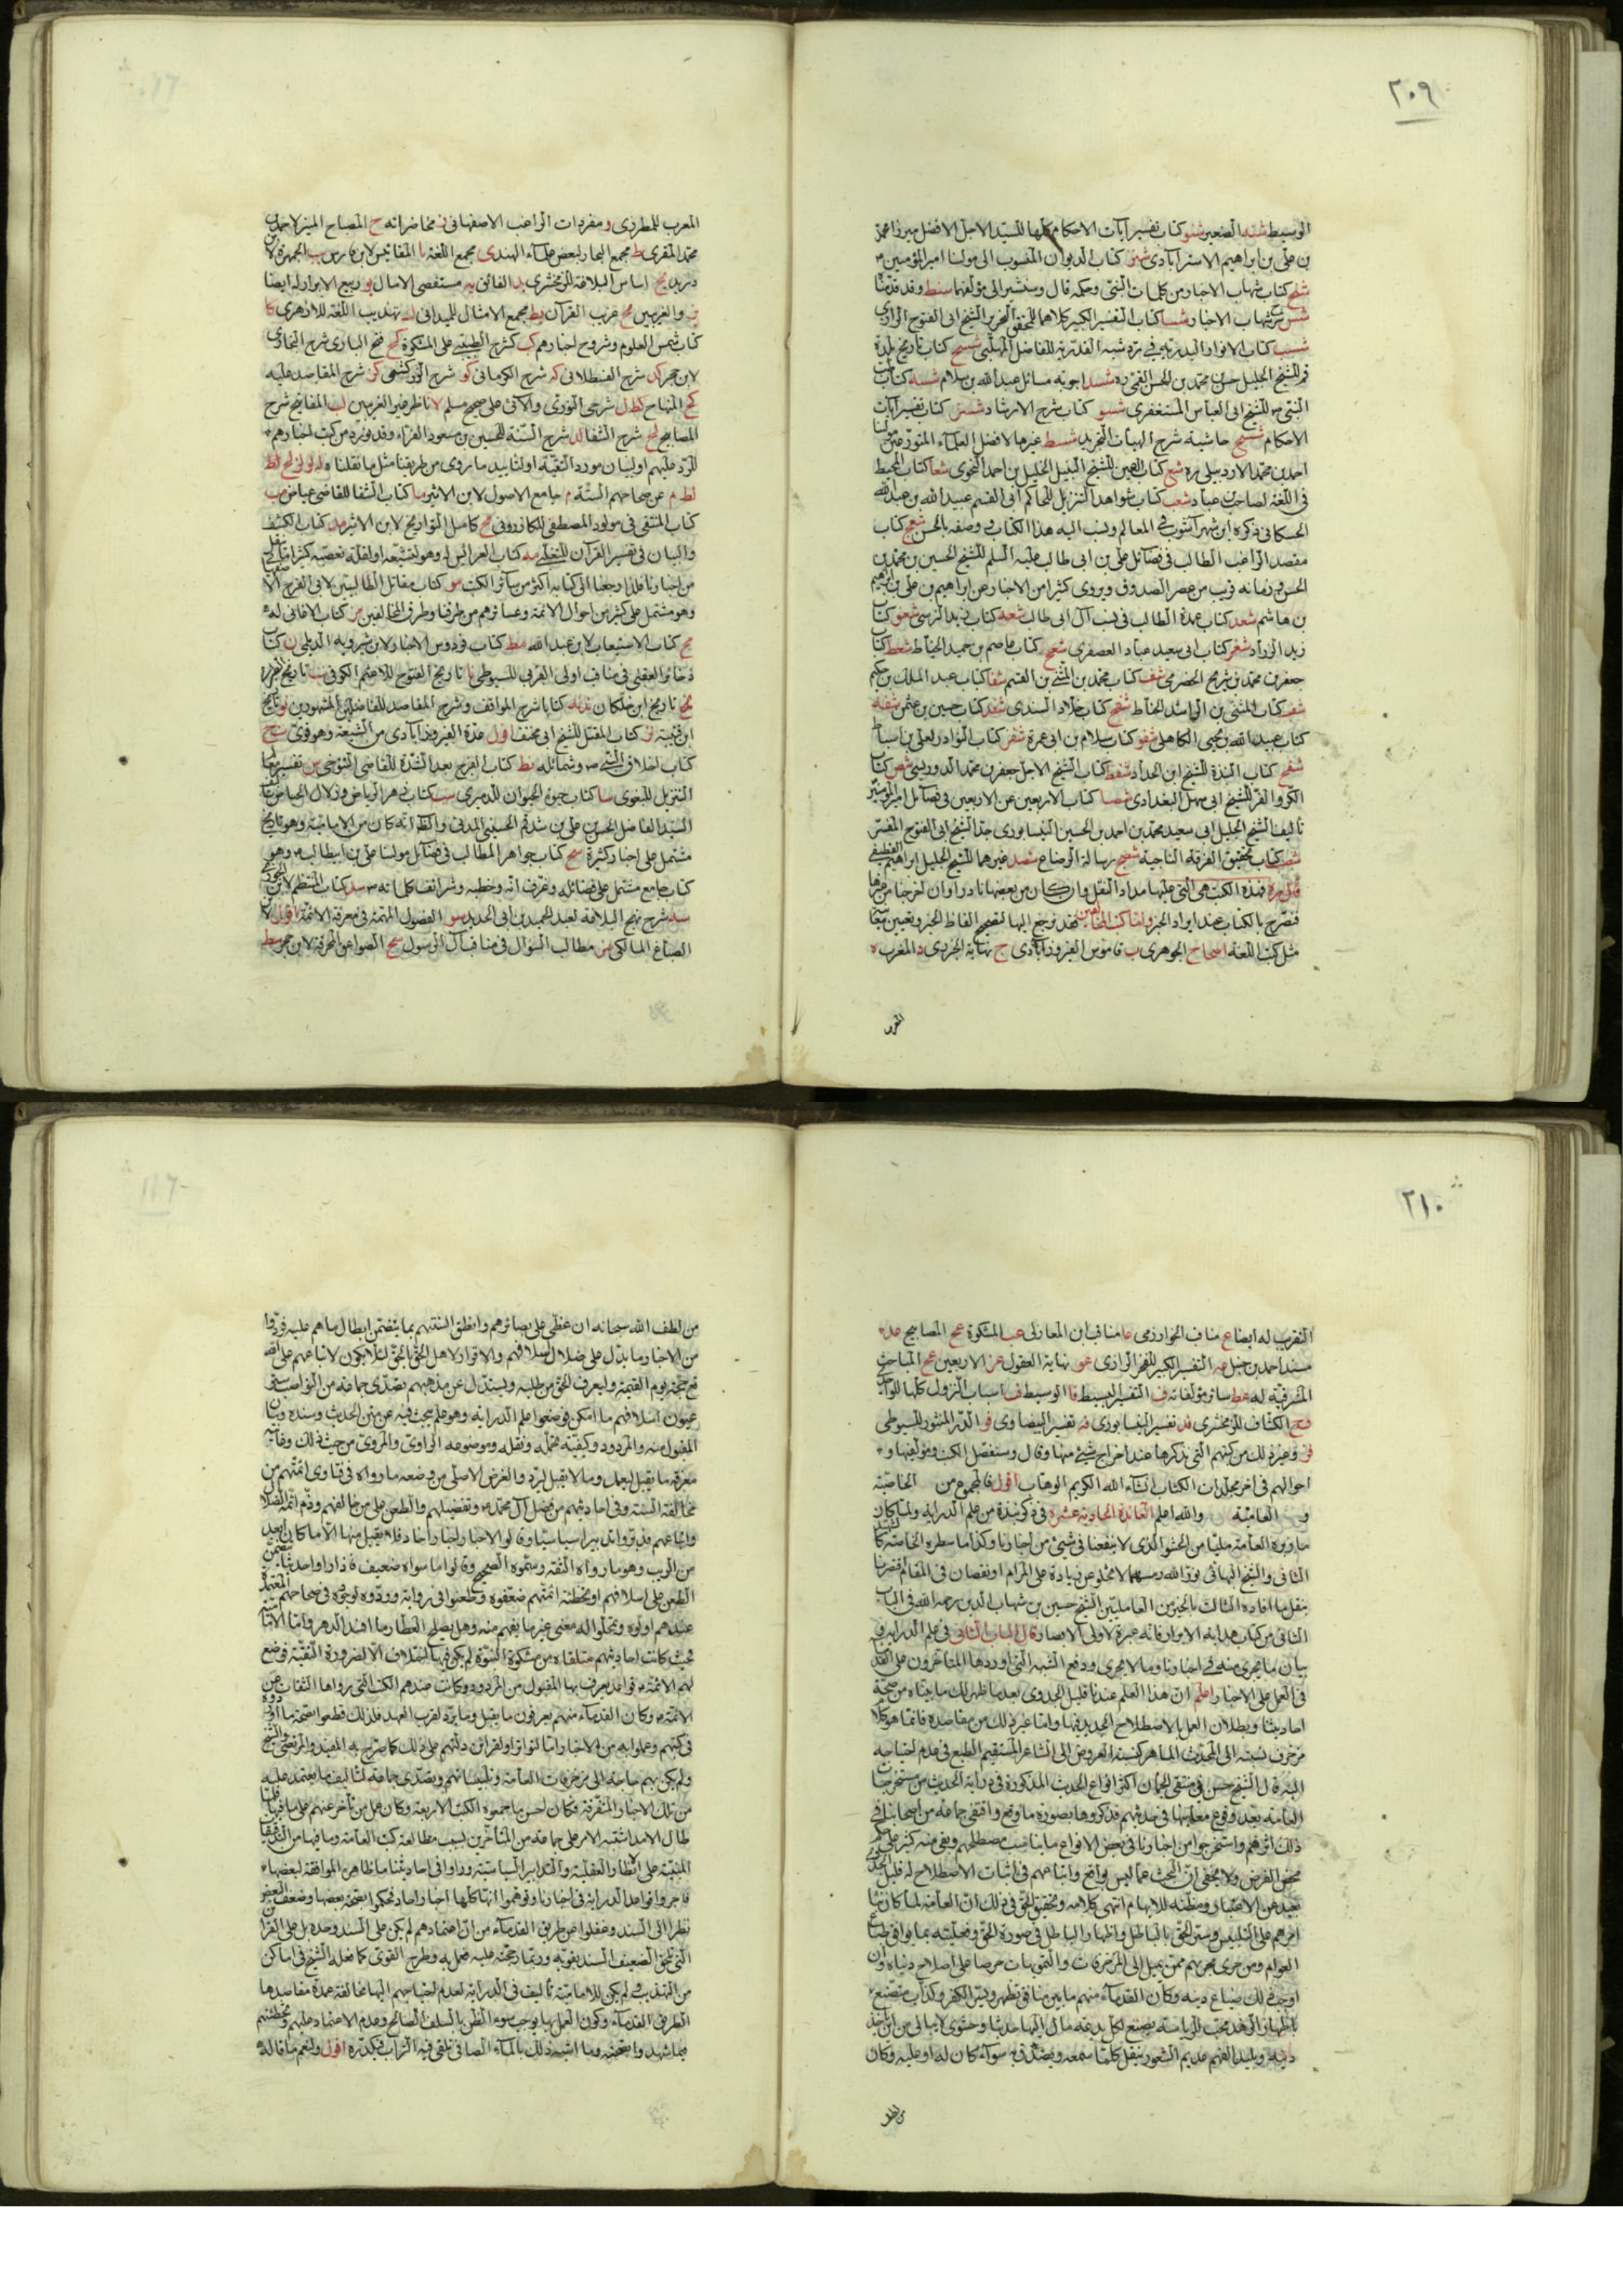 ٢٠٩
الوسيط شنه الصغير شنو كتاب تفسير آيات الاحكام كلها للسيد الاجل الافضل ميرزا محمد
بن على بن ابراهيم الاسترآبادى شنز كتاب الديوان المنسوب الى مولينا امير المؤمنين
شنح كتاب شهاب الاخبار من كلمات النبى وحكمه قال وسنشير الى مؤلفها شنط وقد قدمنا
شس شرح شهاب الاخبار شسا كتاب التفسير الكبير كلاهما للمحقق النحرير الشيخ ابى الفتوح الرازى
شسب كتاب الانوار البدرية فى رد شبه القدرية للفاضل المهلبى شسج كتاب تاريخ بلدة
قم للشيخ الجليل حسن بن محمد بن الحسن القمى ره شسد اجوبة مسائل عبد الله بن سلام شسه كتاب طب
النبى للشيخ ابى العباس المستغفرى شسو كتاب شرح الارشاد شسز كتاب تفسير آيات
الاحكام شسح حاشية شرح الهيات التجريد شسط غيرها لافضل العلماء المتورعين مولينا
احمد بن محمد الاردبيلى ره شع كتاب العين للشيخ النبيل الخليل بن احمد النحوى شعا كتاب المحيط
فى اللغة لصاحب بن عباد شعب كتاب شواهد التنزيل للحاكم ابى القسم عبيد الله بن عبد الله
الحسكانى ذكره ابن شهر آشوب فى المعالم ونسب اليه هذا الكتاب ووصفه بالحسن شعج كتاب
مقصد الراغب الطالب فى فضائل على بن ابى طالب عليه السلم للشيخ الحسين بن محمد بن
الحسن وزمانه قريب من عصر الصدوق ويروى كثيرا من الاخبار عن ابراهيم بن على بن ابراهيم
بن هاشم شعد كتاب عمدة الطالب فى نسب آل ابى طالب شعه كتاب زيد النرسى شعو كتاب
زيد الزراد شعز كتاب ابى سعيد عباد العصفرى شعح كتاب عاصم بن حميد الحناط شعط كتاب
جعفر بن محمد بن شريح الحضرمى شف كتاب محمد بن المثنى بن القسم شفا كتاب عبد الملك بن حكيم
شفب كتاب المثنى بن الوليد الحناط شفج كتاب خلاد السندى شفد كتاب حسين بن عثمن شفه
كتاب عبيد الله بن يحيى الكاهلى شفو كتاب سلام بن ابى عمرة شفز كتاب النوادر لعلى بن اسباط
شفح كتاب النبذة للشيخ ابن الحداد شفط كتاب الشيخ الاجل جعفر بن محمد الدوريستى شص كتاب
الكر والفر للشيخ ابى سهل البغدادى شصا كتاب الاربعين عن الاربعين فى فضائل امير المؤمنين
تاليف الشيخ الجليل ابى سعيد محمد بن احمد بن الحسين النيسابورى جد الشيخ ابى الفتوح المفسر
شصب كتاب تحقيق الفرقة الناجية شصج رسالة الرضاع شصد غيرهما للشيخ الجليل ابراهيم القطيفى
قال ره فهذه الكتب هى التى عليها مدار النقل وان كان من بعضها نادرا وان اخرجنا من غيرها
فنصرح بالكتاب عند ايراد الخبر واما كتب المخالفين فقد نرجع اليها لتصحيح الفاظ الخبر وتعيين معانيه
مثل كتب اللغة ا صحاح الجوهرى ب قاموس الفيروزآبادى ج نهاية الجزرى د المغرب
المغرب للمطرزى و مفردات الراغب الاصفهانى ز محاضراته ح المصباح المنير لاحمد بن
محمد المقرى ط مجمع البحار لبعض علماء الهند ى مجمل اللغة يا المقاييس لابن فارس يب الجمهرة لابن
دريد يج اساس البلاغة للزمخشرى يد الفائق يه مستقصى الامثال يو ربيع الابرار له ايضا
يز والغريبين يح غريب القرآن يط مجمع الامثال للميدانى ك تهذيب اللغة للازهرى كا
كتاب شمس العلوم وشروح اخبارهم كب كشرح الطيبى على المشكوة كج فتح البارى شرح البخارى
لابن حجر كد شرح القسطلانى كه شرح الكرمانى كو شرح الزركشى كز شرح المقاصد عليه
كح المنهاج كط ل شرحى النووى والآبى على صحيح مسلم لا ناظر عين الغريبين لب المفاتيح شرح
المصابيح لج شرح الشفا لد شرح السنة للحسين بن مسعود الفراء وقد نورد من كتب اخبارهم
للرد عليهم او لبيان مورد التقية او لتاييد ما روى من طريقنا مثل ما نقلناه له لو لز لح لط
لط م عن صحاحهم الستة م جامع الاصول لابن الاثير ما كتاب الشفا للقاضى عياض مب
كتاب المنتقى فى مولود المصطفى للكازرونى مج كامل التواريخ لابن الاثير مد كتاب الكشف
والبيان فى تفسير القرآن للثعلبى مه كتاب العرايس له وهو لتشيعه او لقلة تعصبه كثيرا ما ينقل
من اخبارنا فلذا رجعنا الى كتابيه اكثر من سائر الكتب مو كتاب مقاتل الطالبيين لابى الفرج الاصفهانى
وهو مشتمل على كثير من احوال الائمة وعشائرهم من طرقنا وطرق المخالفين مز كتاب الاغانى له
مح كتاب الاستيعاب لابن عبد الله مط كتاب فردوس الاخبار لابن شيرويه الديلمى ن كتاب
ذخائر العقبى فى مناقب اولى القربى للسيوطى نا تاريخ الفتوح للاعثم الكوفى نب تاريخ الطبرى
نج تاريخ ابن خلكان ند نه كتابا شرح المواقف وشرح المقاصد للفاضلين المشهورين نو تاريخ
ابن قتيبة نز كتاب المقتل للشيخ ابى مخنف اقول عده الفيروزآبادى من الشيعة وهو قوى نح
كتاب اخلاق النبى وشمائله نط كتاب الفرج بعد الشدة للقاضى التنوخى س تفسير معالم
التنزيل للبغوى سا كتاب حيوة الحيوان للدميرى سب كتاب زهر الرياض وزلال الحياض تاليف
السيد الفاضل الحسن بن على بن شدقم الحسينى المدنى والظ انه كان من الامامية وهو تاريخ
مشتمل على اخبار كثيرة سج كتاب جواهر المطالب فى فضائل مولينا على بن ابيطالب وهو
كتاب جامع مشتمل على فضائله وغزواته وخطبه وشرائف كلماته سد كتاب المنتظم لابن الجوزى
سه شرح نهج البلاغة لعبد الحميد بن ابى الحديد سو الفصول المهمة فى معرفة الائمة اقول لابن
الصباغ المالكى سز مطالب السؤال فى مناقب آل الرسول سح الصواعق المحرقة لابن حجر سط
٢١٠
التقريب له ايضا ع مناقب الخوارزمى عا مناقب ابن المغازلى عب المشكوة عج المصابيح عد
مسند احمد بن حنبل عه التفسير الكبير للفخر الرازى عو نهاية العقول عز الاربعين عح المباحث
المشرقية له عط سائر مؤلفاته ف التفسير البسيط فا الوسيط فب اسباب النزول كلها للواحدى
فج الكشاف للزمخشرى فد تفسير النيسابورى فه تفسير البيضاوى فو الدر المنثور للسيوطى
فز وغير ذلك من كتبهم التى نذكرها عند اخراج شىء منها وقال وسنفصل الكتب ومؤلفيها و
احوالهم فى آخر مجلدات الكتاب انشاء الله الكريم الوهاب اقول فالمجموع من الخاصية
و العامية والله اعلم الفائدة الحادية عشر فى ذكر نبذة من علم الدراية ولما كان
ما دونه العامة مليا من الحشو الذى لا ينفعنا فى شىء من اخبارنا وكذا ما سطره الخاصة كالشهيد
الثانى والشيخ البهائى نور الله رمسهما لا يخلو عن زيادة على المرام او نقصان فى المقام اقتصرنا
بنقل ما افاده الثالث بالخير من العامليين الشيخ حسين بن شهاب الدين رحمه الله فى الباب
الثانى من كتاب هداية الابرار فانه عبرة لاولى الابصار قال الباب الثانى فى علم الدراية و
بيان ما يجرى منه فى اخبارنا وما لا يجرى ودفع الشبه التى اوردها المتاخرون على القدماء
فى العمل على الاخبار اعلم ان هذا العلم عندنا قليل الجدوى بعد ما ظهر لك ما بيناه من صحة
احاديثنا وبطلان العمل بالاصطلاح الجديد فيها واما غير ذلك من مقاصده فانما هو كلام
مزخرف نسبته الى المحدث الماهر كنسبة العروض الى الشاعر المستقيم الطبع فى عدم احتياجه
اليه قال الشيخ حسن فى منتقى الجمان اكثر انواع الحديث المذكورة فى دراية الحديث من مستخرجات
العامة بعد وقوع معانيها فى حديثهم فذكروها بصورة ما وقع واقتفى جماعة من اصحابنا فى
ذلك اثرهم واستخرجوا من اخبارنا فى بعض الانواع ما يناسب مصطلحهم وبقى منه كثير على حكم
محض الفرض ولا يخفى ان البحث عما ليس بواقع واتباعهم فى اثبات الاصطلاح له قليل الجدوى
بعيد عن الاعتبار ومظنة للايهام انتهى كلامه وتحقيق الحق فى ذلك ان العامة لما كان بناء
امرهم على التلبيس وستر الحق بالباطل واظهار الباطل فى صورة الحق وتحليته بما يوافق طباع
العوام ومن جرى مجراهم ممن يميل الى المزخرفات والتمويهات حرصا على اصلاح دنياه وان
اوجب ذلك ضياع دينه وكان القدماء منهم ما بين منافق تظهر ويسر الكفر وكذاب متصنع
باظهار الزهد محب للرياسة يصنع لكل بدعة مال اليها حديثا وحشوى لا يبالى من اين اخذ
دينه وبليد الفهم عديم الشعور ينقل كلما سمعه ويصدق به سواء كان له او عليه وكان
من لطف الله سبحانه ان غطى على بصائرهم وانطق السنتهم بما يتضمن ابطال ما هم عليه فرووا
من الاخبار ما يدل على ضلال اسلافهم والاقرار لاهل الحق بالحق لئلا يكون لاتباعهم على الله
مع حجة يوم القيمة وليعرف الحق من طلبه ويستدل عن مذهبهم تصدى جماعة من النواصب ستر
عيوب اسلافهم ما امكن فوضعوا علم الدراية وهو علم يبحث فيه عن متن الحديث وسنده وبيان
المقبول منه والمردود وكيفية تحمله ونقله وموضوعه الراوى والمروى من حيث ذلك وغايته
معرفة ما يقبل ليعمل وما لا يقبل ليرد والغرض الاصلى من وضعه ما رواه فى فتاوى ائمتهم من
مخالفة السنة وفى احاديثهم من فضل آل محمد وتفضيلهم والطعن على من خالفهم وذم ائمة الضلال
واتباعهم فدبروا تدبيرا سياسيا وقالوا الاخبار اخبار آحاد فلا يقبل منها الا ما كان ابعد
من الريب وهو ما رواه الثقة وسموه الصحيح وقالوا ما سواه ضعيف فاذا راوا حديثا يتضمن
الطعن على اسلافهم او تخطئة ائمتهم ضعفوه وطعنوا فى رواته وردوه لو وجدوه فى صحاحهم المعتمدة
عندهم اولوه وتحملوا له معنى غير ما يفهم منه وهل يصلح العطار ما افسد الدهر واما الامامية
فحيث كانت احاديثهم متلقاة من مشكوة النبوة لم يكن فيها اختلاف الا لضرورة التقية فوضع
لهم الائمة قواعد يعرف بها المقبول من المردود وكانت عندهم الكتب التى رواها الثقات عن
الائمة وكان القدماء منهم يعرفون ما يقبل وما يرد لقرب العهد فلذلك قطعوا بصحة ما اوردوه
فى كتبهم وعملوا به من الاخبار اما لتواتر او لقرائن دلتهم على ذلك كما صرح به المفيد والمرتضى والشيخ
ولم يكن بهم حاجة الى مزخرفات العامة وتلبيساتهم وتصدى جماعة لتاليف ما يعتمد عليه
من تلك الاخبار المتفرقة فكان احسن ما جمعوه الكتب الاربعة وكان عمل من تاخر عنهم على ما فيها فلما
طال الامد اشتبه الامر على جماعة من المتاخرين بسبب مطالعة كتب العامة وما فيها من التدقيقات
المبنية على انظار العقلية والتدابير السياسية وراوا فى احاديثنا ما ظاهره الموافقة لبعضها
فاجروا قواعد الدراية فى اخبارنا وتوهموا انها كلها اخبار آحاد فحكموا بصحة بعضها وضعف البعض
نظرا الى السند وغفلوا عن طريق القدماء من ان اعتمادهم لم يكن على السند وحده بل على القرائن
التى تلحق الضعيف السند بقويه وربما رجحته عليه فعمل به وطرح القوى كما فعله الشيخ فى اماكن
من التهذيب ولم يكن للامامية تأليف فى الدراية لعدم احتياجهم اليها لمخالفة عمدة مقاصدها
لطريق القدماء وكون العمل بها يوجب سوء الظن بالسلف الصالح وعدم الاعتماد عليهم وتخطئتهم
فيما شهدوا بصحته وما اشبه ذلك بالماء الصافى تلقى فيه التراب فيكدره اقول ولنعم ما قاله